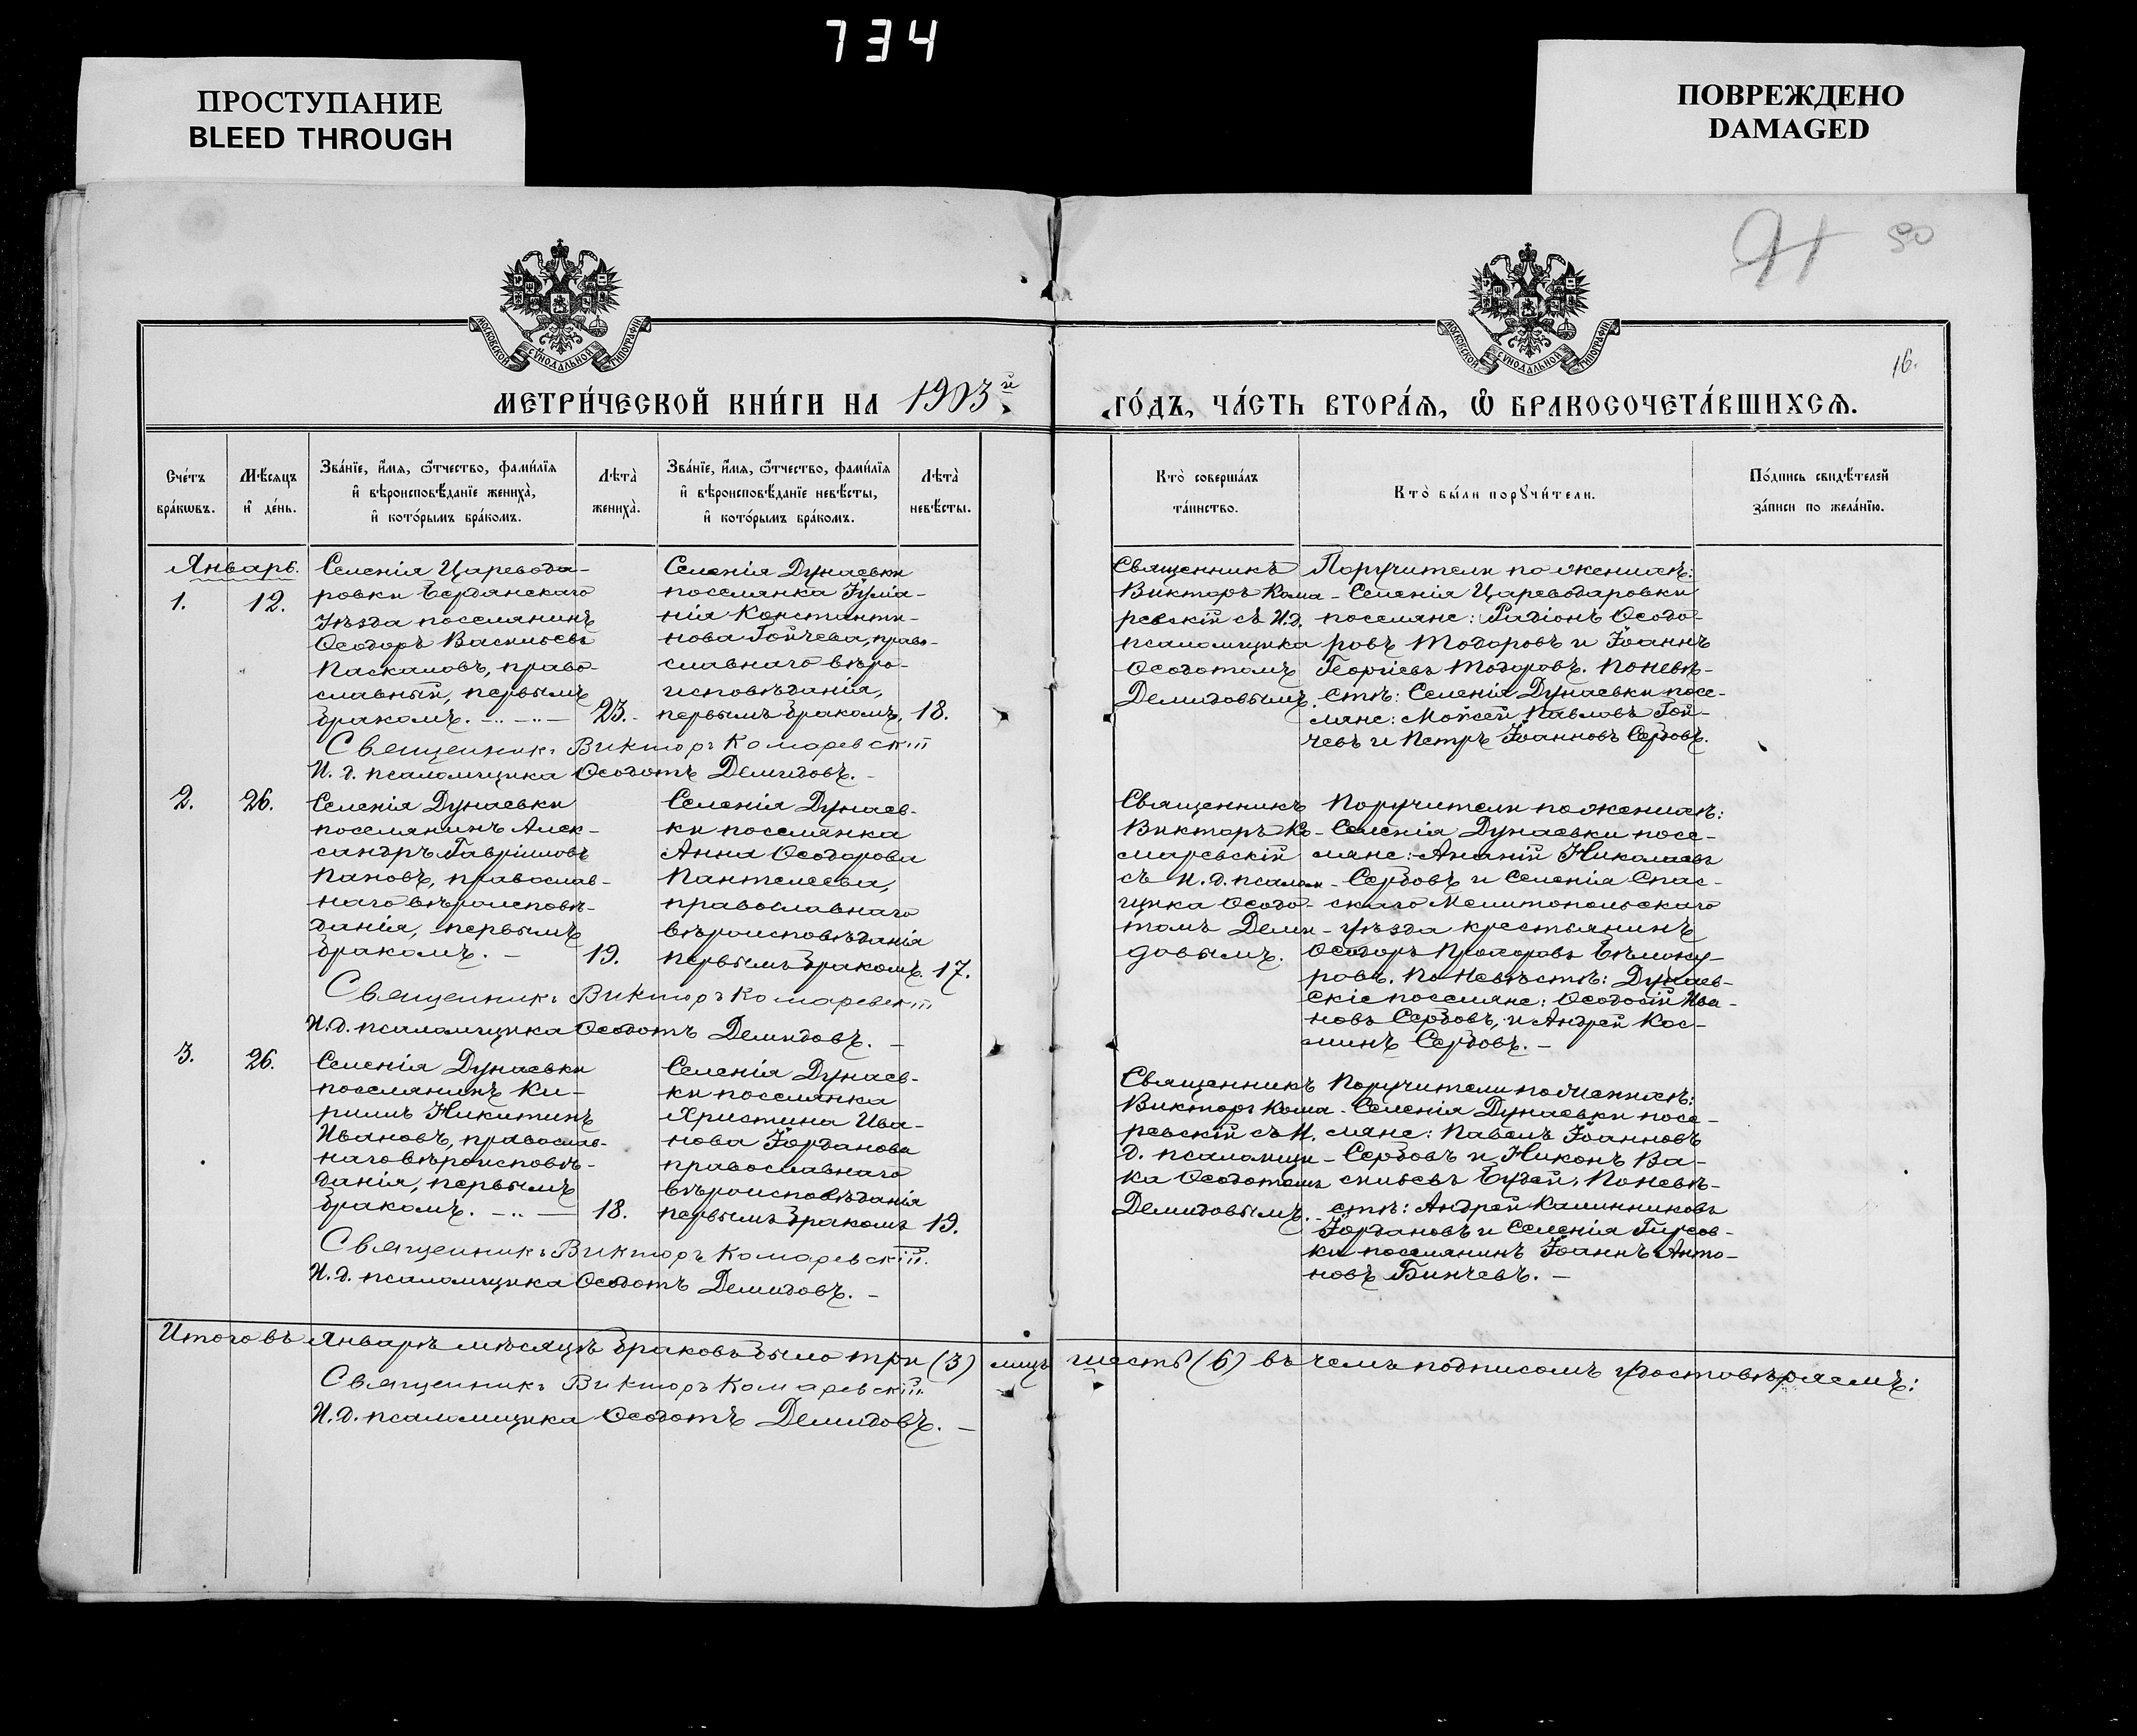 734
ПРОСТУПАНИЕ
BLEED THROUGH
ПОВРЕЖДЕНО
DAMAGED
91 90
МОСКОВСКОЙ СѴНОДАЛЬНОЙ ТИПОГРАФІИ
МОСКОВСКОЙ СѴНОДАЛЬНОЙ ТИПОГРАФІИ
16.
МЕТРИ́ЧЕСКОЙ КНИ́ГИ НА 1903й
ГО́ДЪ, ЧА́СТЬ ВТОРА́Ѧ, Ѽ БРАКОСОЧЕТА́ВШИХСѦ.
Сче́тъ
бра́кѡвъ.
Мѣ́сяцъ
и҆ де́нь.
Зва́нїе, и҆́мя, ѻ҆́тчество, фами́лїя
и҆ вѣроисповѣ́данїе жениха̀,
и҆ кото́рымъ бра́комъ.
Лѣта̀
жениха̀.
Зва́нїе, и҆́мя, ѻ҆́тчество, фами́лїя
и҆ вѣроисповѣ́данїе невѣ́сты,
и҆ кото́рымъ бра́комъ.
Лѣта̀
невѣ́сты.
Кто̀ соверша́лъ
та́инство.
Кто̀ бы́ли порꙋчи́тели.
По́дпись свидѣ́телей
за́писи по жела́нїю.
Январь.
1.
12.
Селенія Царевода-
ровки Бердянскаго
уѣзда поселянинъ
Ѳеодоръ Васильевъ
Паскаловъ, право-
славный, первымъ
бракомъ.
23.
Селенія Дунаевки
поселянка Іулiа-
нія Константи-
нова Гойчева, право-
славнаго вѣро-
исповѣданія,
первымъ бракомъ.
18.
Священникъ
Викторъ Кома-
ревскій съ И.д.
псаломщика
Ѳеодотомъ
Демидовымъ.
Поручители по женихѣ:
Селенія Цареводаровки
поселяне: Радіонъ Ѳеодо-
ровъ Тодоровъ и Іоаннъ
Георгіевъ Тодоровъ. По невѣ-
стѣ: Селенія Дунаевки посе-
ляне: Мойсей Павловъ Гой-
чевъ и Петръ Іоанновъ Сербовъ.
Священникъ Викторъ Комаревскій
И. д. псаломщика Ѳеодотъ Демидовъ.
2.
26.
Селенія Дунаевки
поселянинъ Алек-
сандръ Гавріиловъ
Пановъ, православ-
наго вѣроисповѣ-
данія, первымъ
бракомъ.
19.
Селенія Дунаев-
ки поселянка
Анна Ѳеодорова
Пантелеева,
православнаго
вѣроисповѣданія
первымъ бракомъ.
17.
Священникъ
Викторъ Ко-
маревскій
съ И. д. псалом-
щика Ѳеодо-
томъ Деми-
довымъ.
Поручители по женихѣ:
Селенія Дунаевки посе-
ляне: Ананій Николаевъ
Сербовъ и Селенія Спас-
скаго Мелитопольскаго
уѣзда крестьянинъ
Ѳеодоръ Прохоровъ Бѣлоку-
ровъ. По невѣстѣ: Дунаев-
скіе поселяне: Ѳеодосій Ива-
новъ Сербовъ, и Андрей Кос-
минъ Сербовъ.
Священникъ Викторъ Комаревскій
И.д. псаломщика Ѳеодотъ Демидовъ.
3.
26.
Селенія Дунаевки
поселянинъ Ки-
риллъ Никитинъ
Ивановъ, православ-
наго вѣроисповѣ-
данія, первымъ
бракомъ.
18.
Селенія Дунаев-
ки поселянка
Христина Ива-
нова Іорданова
православнаго
вѣроисповѣданія
первымъ бракомъ
19.
Священникъ
Викторъ Кома-
ревскій съ И.
д. псаломщи-
ка Ѳеодотомъ
Демидовымъ.
Поручители по женихѣ:
Селенія Дунаевки посе-
ляне: Павелъ Іоанновъ
Сербовъ и Никонъ Ва-
сильевъ Будей, По невѣ-
стѣ: Андрей Калинниковъ
Іордановъ и Селенія Гирсов-
ки поселянинъ Іоаннъ Анто-
новъ Бинчевъ.
Священникъ Викторъ Комаревскій.
И. д. псаломщика Ѳеодотъ Демидовъ.
Итого въ Январѣ мѣсяцѣ браковъ было три (3) лицъ шесть (6) въ чемъ подписомъ удостовѣряемъ:
Священникъ Викторъ Комаревскій
И. д. псаломщика Ѳеодотъ Демидовъ.